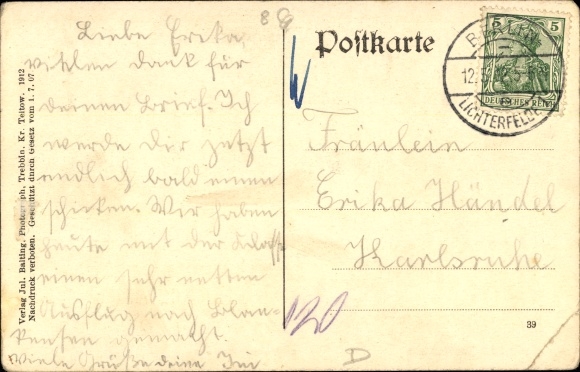 8
Postkarte
Liebe Erika,
vielen Dank für
deinen Brief. Ich
werde dir jetzt
endlich bald einen
schicken. Wir haben
heute mit der Klasse
einen sehr netten
Ausflug nach Blan-
kensee gemacht.
Viele Grüße deine
Fräulein
Erika Händel
Karlsruhe
5 5
DEUTSCHES REICH
BERLIN
12.
LICHTERFELDE
Verlag Jul. Balting, Photograph, Trebbin, Kr. Teltow. 1912
Nachdruck verboten. Geschützt durch Gesetz vom 1. 7. 07.
120
39
D